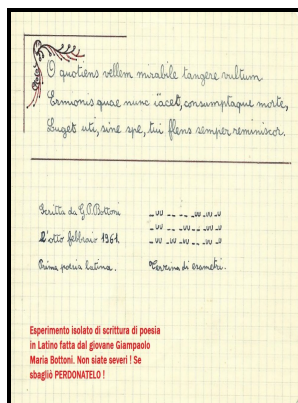 O quotiens vellem mirabile tangere vultum
Ermonis quae nunc iacet, consumptaque morte,
Luget uti, sine spe, tui flens semper reminiscor.
Scritta da G.P.Bottoni
L'otto febbraio 1961.
Prima poesia latina.
Terzina di esametri.
Esperimento isolato di scrittura di poesia
in Latino fatta dal giovane Giampaolo
Maria Bottoni. Non siate severi ! Se
sbagliò PERDONATELO !